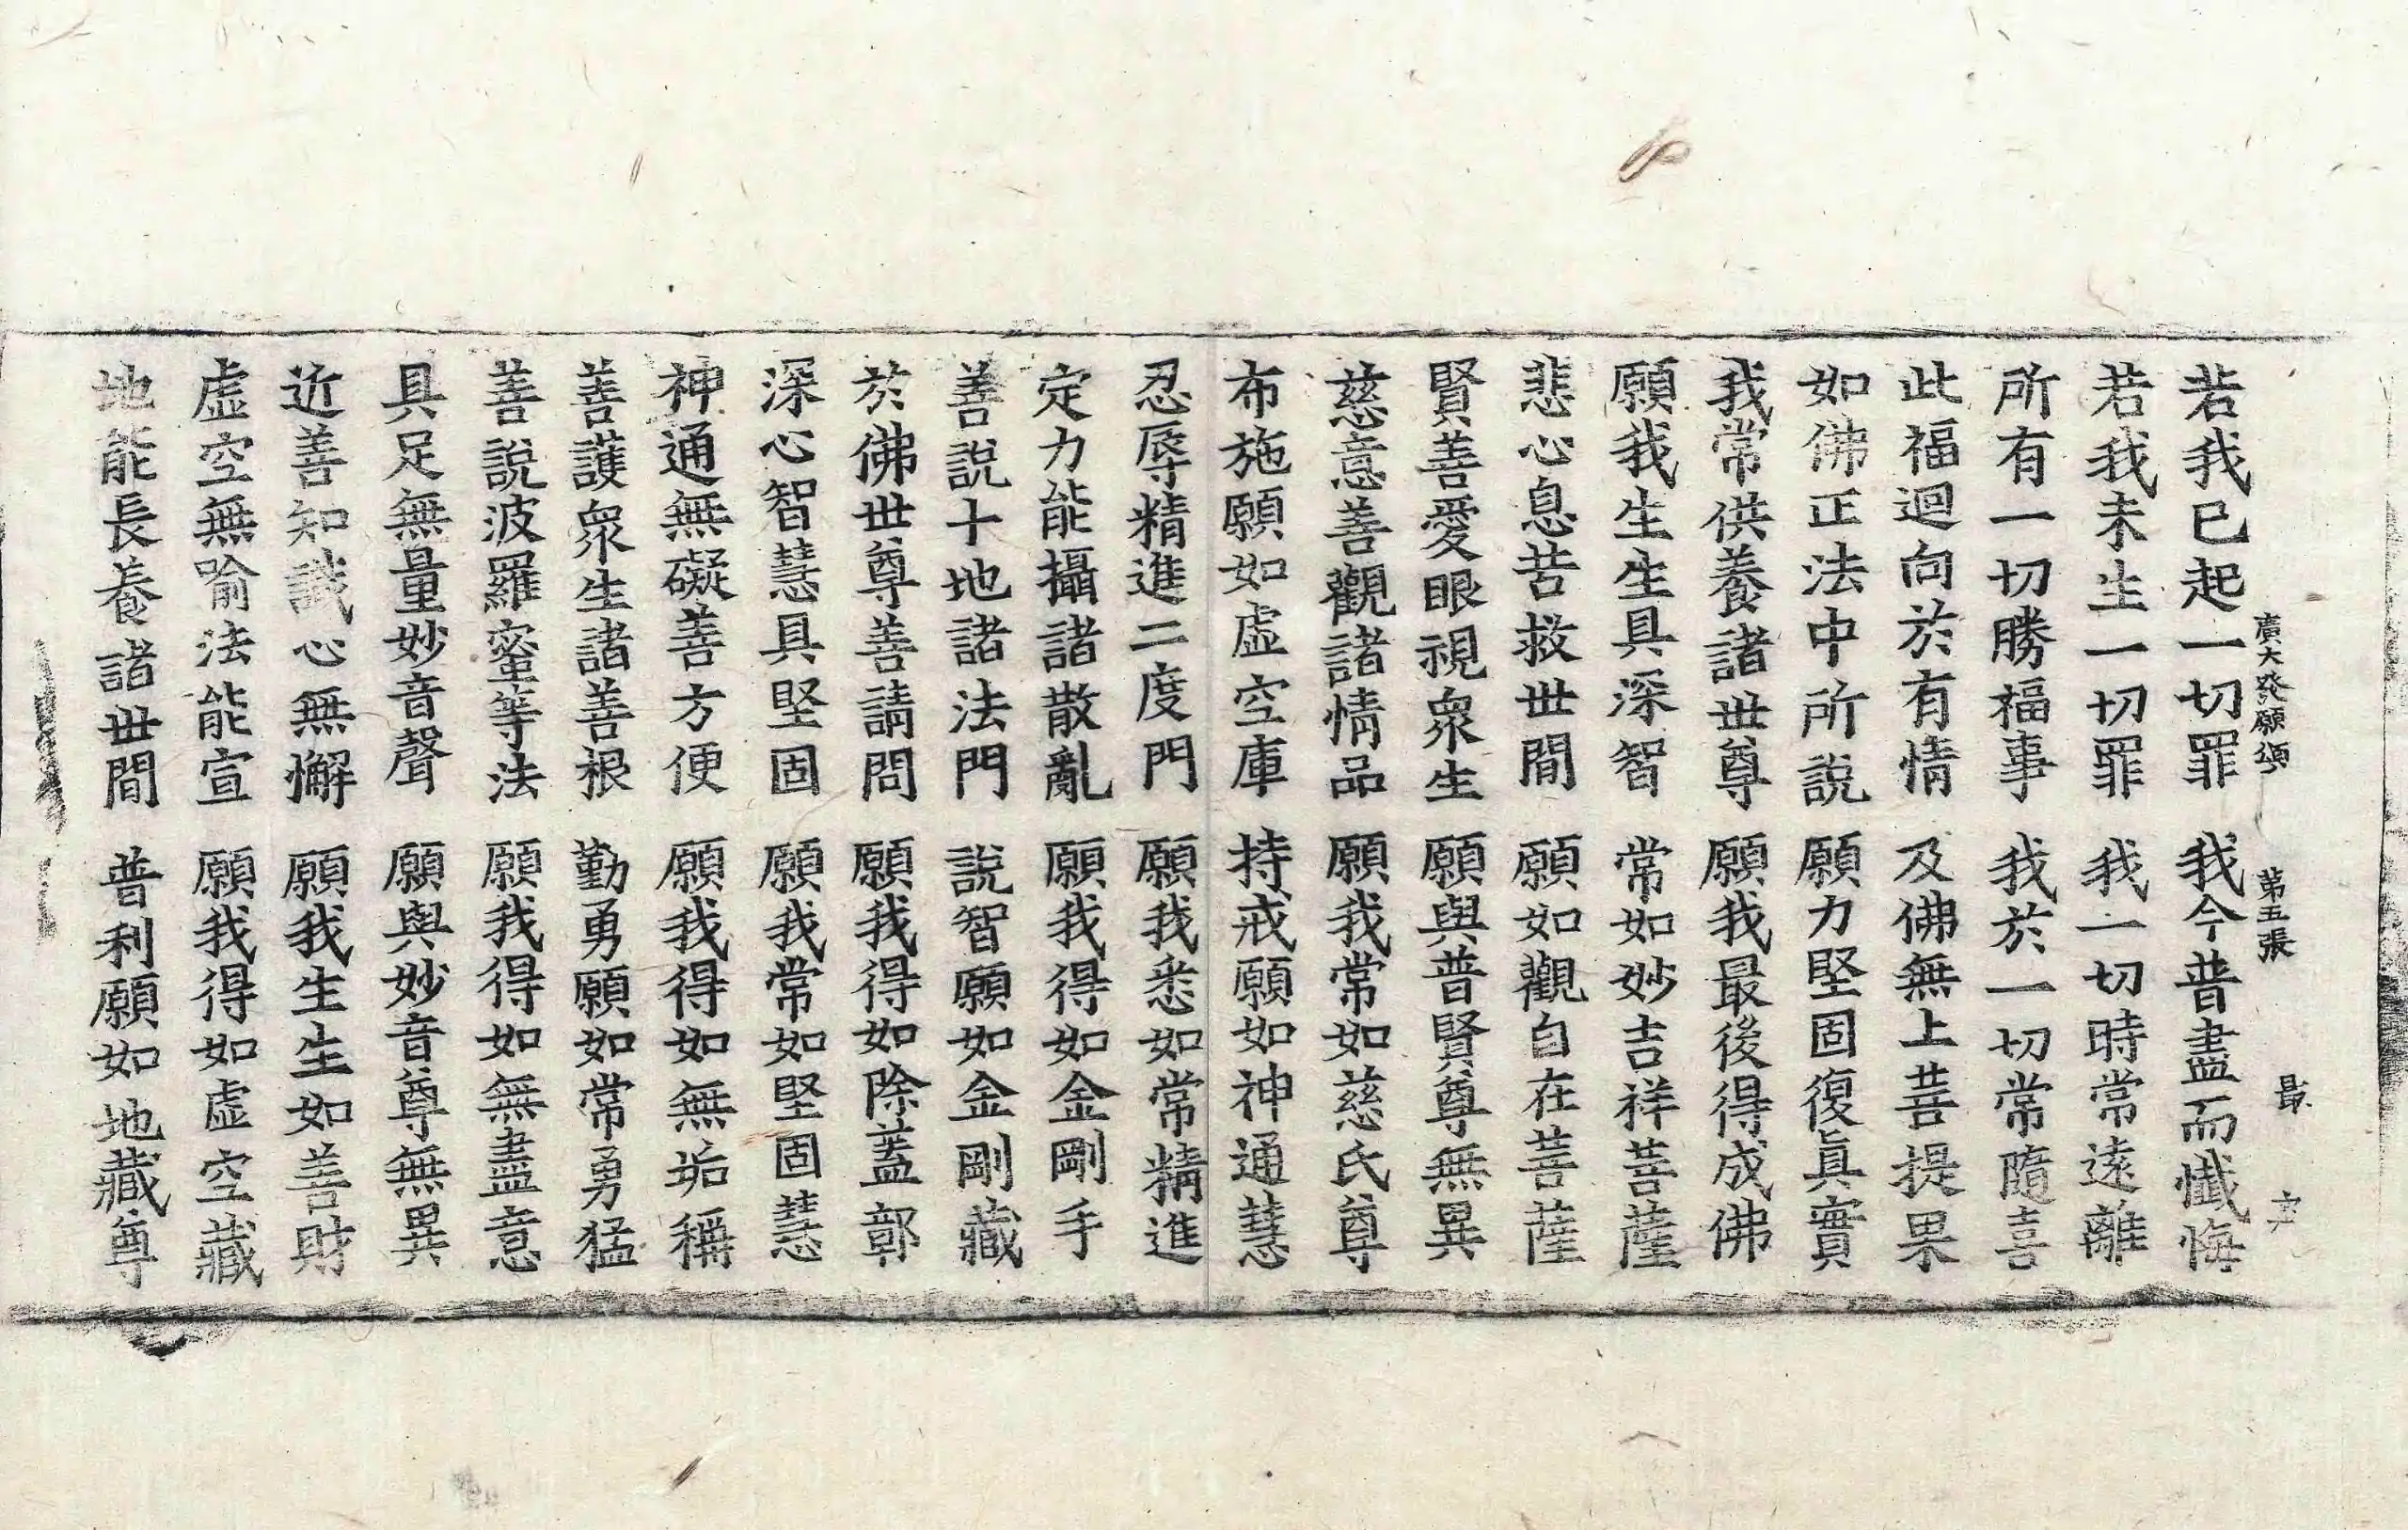 廣大發願頌 第五張 最
若我已起一切罪 我今普盡而懺悔
若我未生一切罪 我一切時常遠離
所有一切勝福事 我於一切常隨喜
此福迴向於有情 及佛無上菩提果
如佛正法中所說 願力堅固復眞實
我常供養諸世尊 願我最後得成佛
願我生生具深智 常如妙吉祥菩薩
悲心息苦救世間 願如觀自在菩薩
賢善愛眼視衆生 願與普賢尊無異
慈意善觀諸情品 願我常如慈氏尊
布施願如虛空庫 持戒願如神通慧
忍辱精進二度門 願我悉如常精進
定力能攝諸散亂 願我得如金剛手
善說十地諸法門 說智願如金剛藏
於佛世尊善請問 願我得如除蓋鄣
深心智慧具堅固 願我常如堅固慧
神通無礙善方便 願我得如無垢稱
善護衆生諸善根 勤勇願如常勇猛
善說波羅蜜等法 願我得如無盡意
具足無量妙音聲 願與妙音尊無異
近善知識心無懈 願我生生如善財
虛空無喻法能宣 願我得如虛空藏
地能長養諸世間 普利願如地藏尊